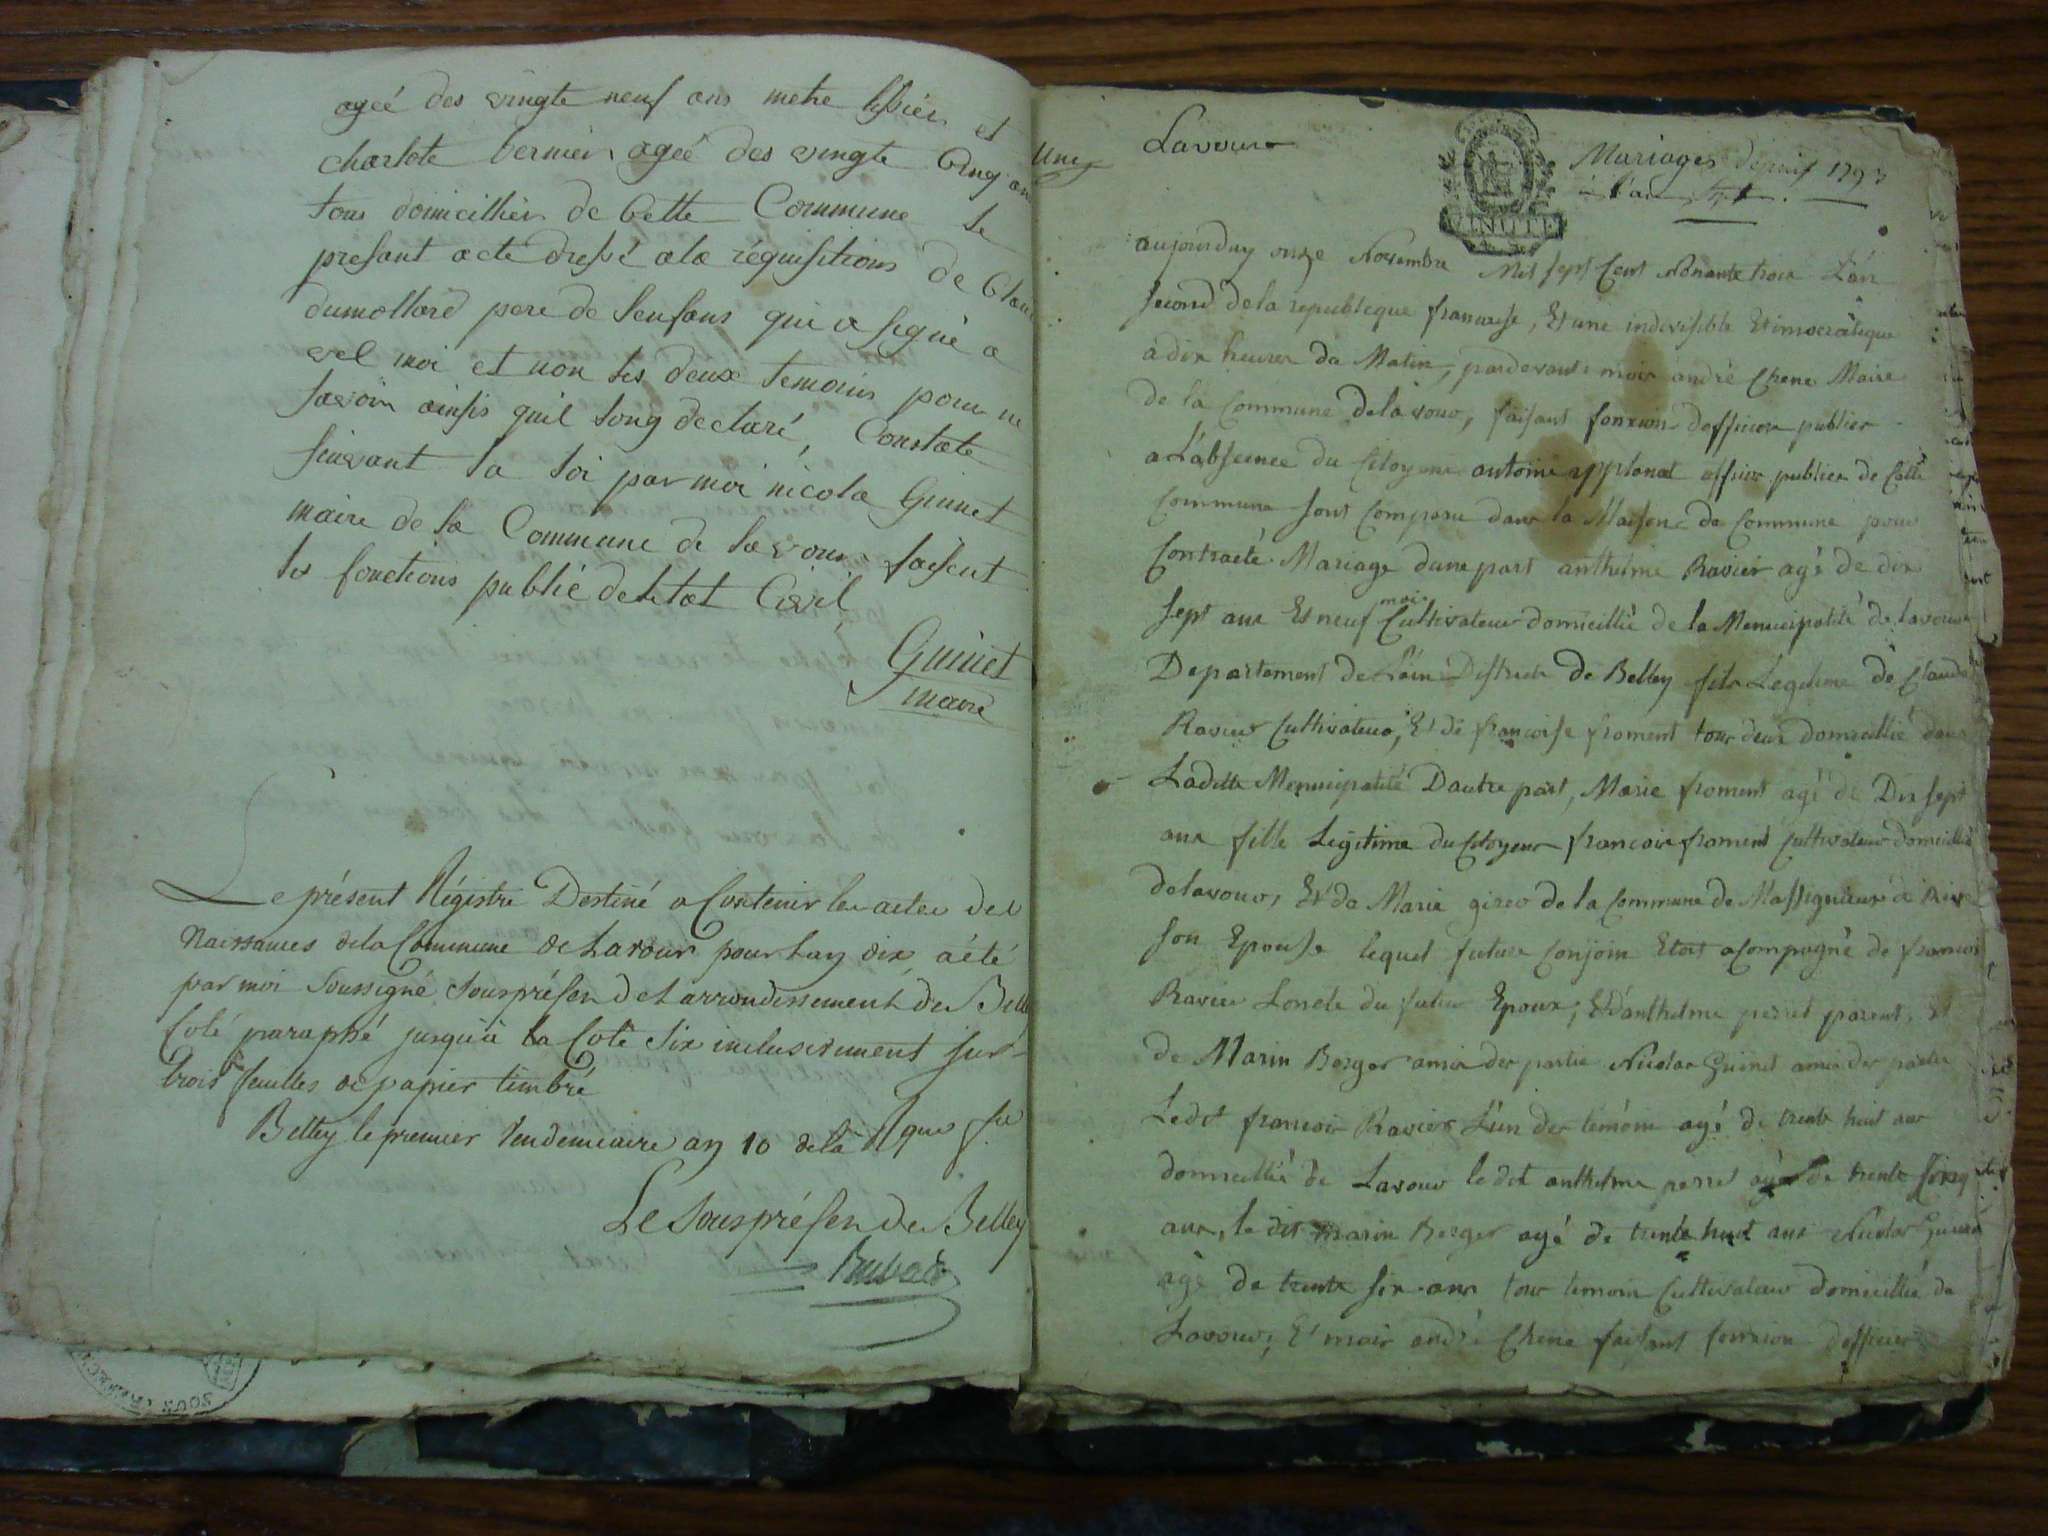 ageé des vingte neuf ans metre et
charlote bernier ageé des vingte Cinq an
tous domicilliér de Cette Commune le
presant acte dressé ala réquisitions de Clau
dumollard pere de lenfans qui a signé a
vel moi et non les deux temoins pour ne
savoir ainsis quil song declaré, Constate
suivant la loi par moi nicola Guinet
maire de la Commune de lavour faisent
les fonctions publié deletat Civil
Guinet
maire
Le présent Régistre Destiné a Contenir les actes des
Naissances dela Commune de Lavour pour l'an dix, a été
par moi Soussigné, Sous préfet de L arrondissement de Belle
Coté paraphé jusqu'à la Cote Six inclusivement sur
trois feuilles de papier timbré
Belley le premier Vendemiaire an 10 dela Rque fse
Le Sous préfet de Belley
une Lavour
Mariages depuis 1793
à l'an
MINUTE
aujourduy onze Novembre Mil sept Cent Nonante trois L'an
second dela republique francaise, Et une indivisible Et
a dix heures du Matin, pardevant moi andré Chene Maire
de la Commune delavour, faisant fonxion dofficier publier
a L'absence du Citoyen antoine officier publier de Cette
Commune sont Comparu dans la Maison de Commune pour
Contracté Mariage dune part anthelme Ravier agé de dix
sept ans Et neuf mois Cultivateur domicillié de la Menucipalité de lavour
Departement de L'ain District de Belley fils Legitime de Claude
Ravier Cultivateur, Et de francoise froment tous deux domicillié dans
Ladite Menucipalité Dautre part, Marie froment agé de Dix sept
ans fille Legitime du Citoyen francois froment Cultivateur domicillié
delavour, Et de Marie de la Commune de Massignieux de Rive
son Epouse lequel future Conjoin Etoit acompagné de francois
Ravier Loncle du futur Epoux; Et d'anthelme perret parent, et
de Marin Berger amis der partie Nicolas Guinet amis der partie
Ledit francois Ravier L'un der temoin agé de trente huit ans
domicillié de Lavour ledit anthelme perret agé de trente Cinq
ans, le dit marin Berger agé de trente huit ans Nicolas Guinet
agé de trente six ans tous temoin Cultivateur domicillié de
Lavour; Et moi andré Chene faisant fonxion dofficier